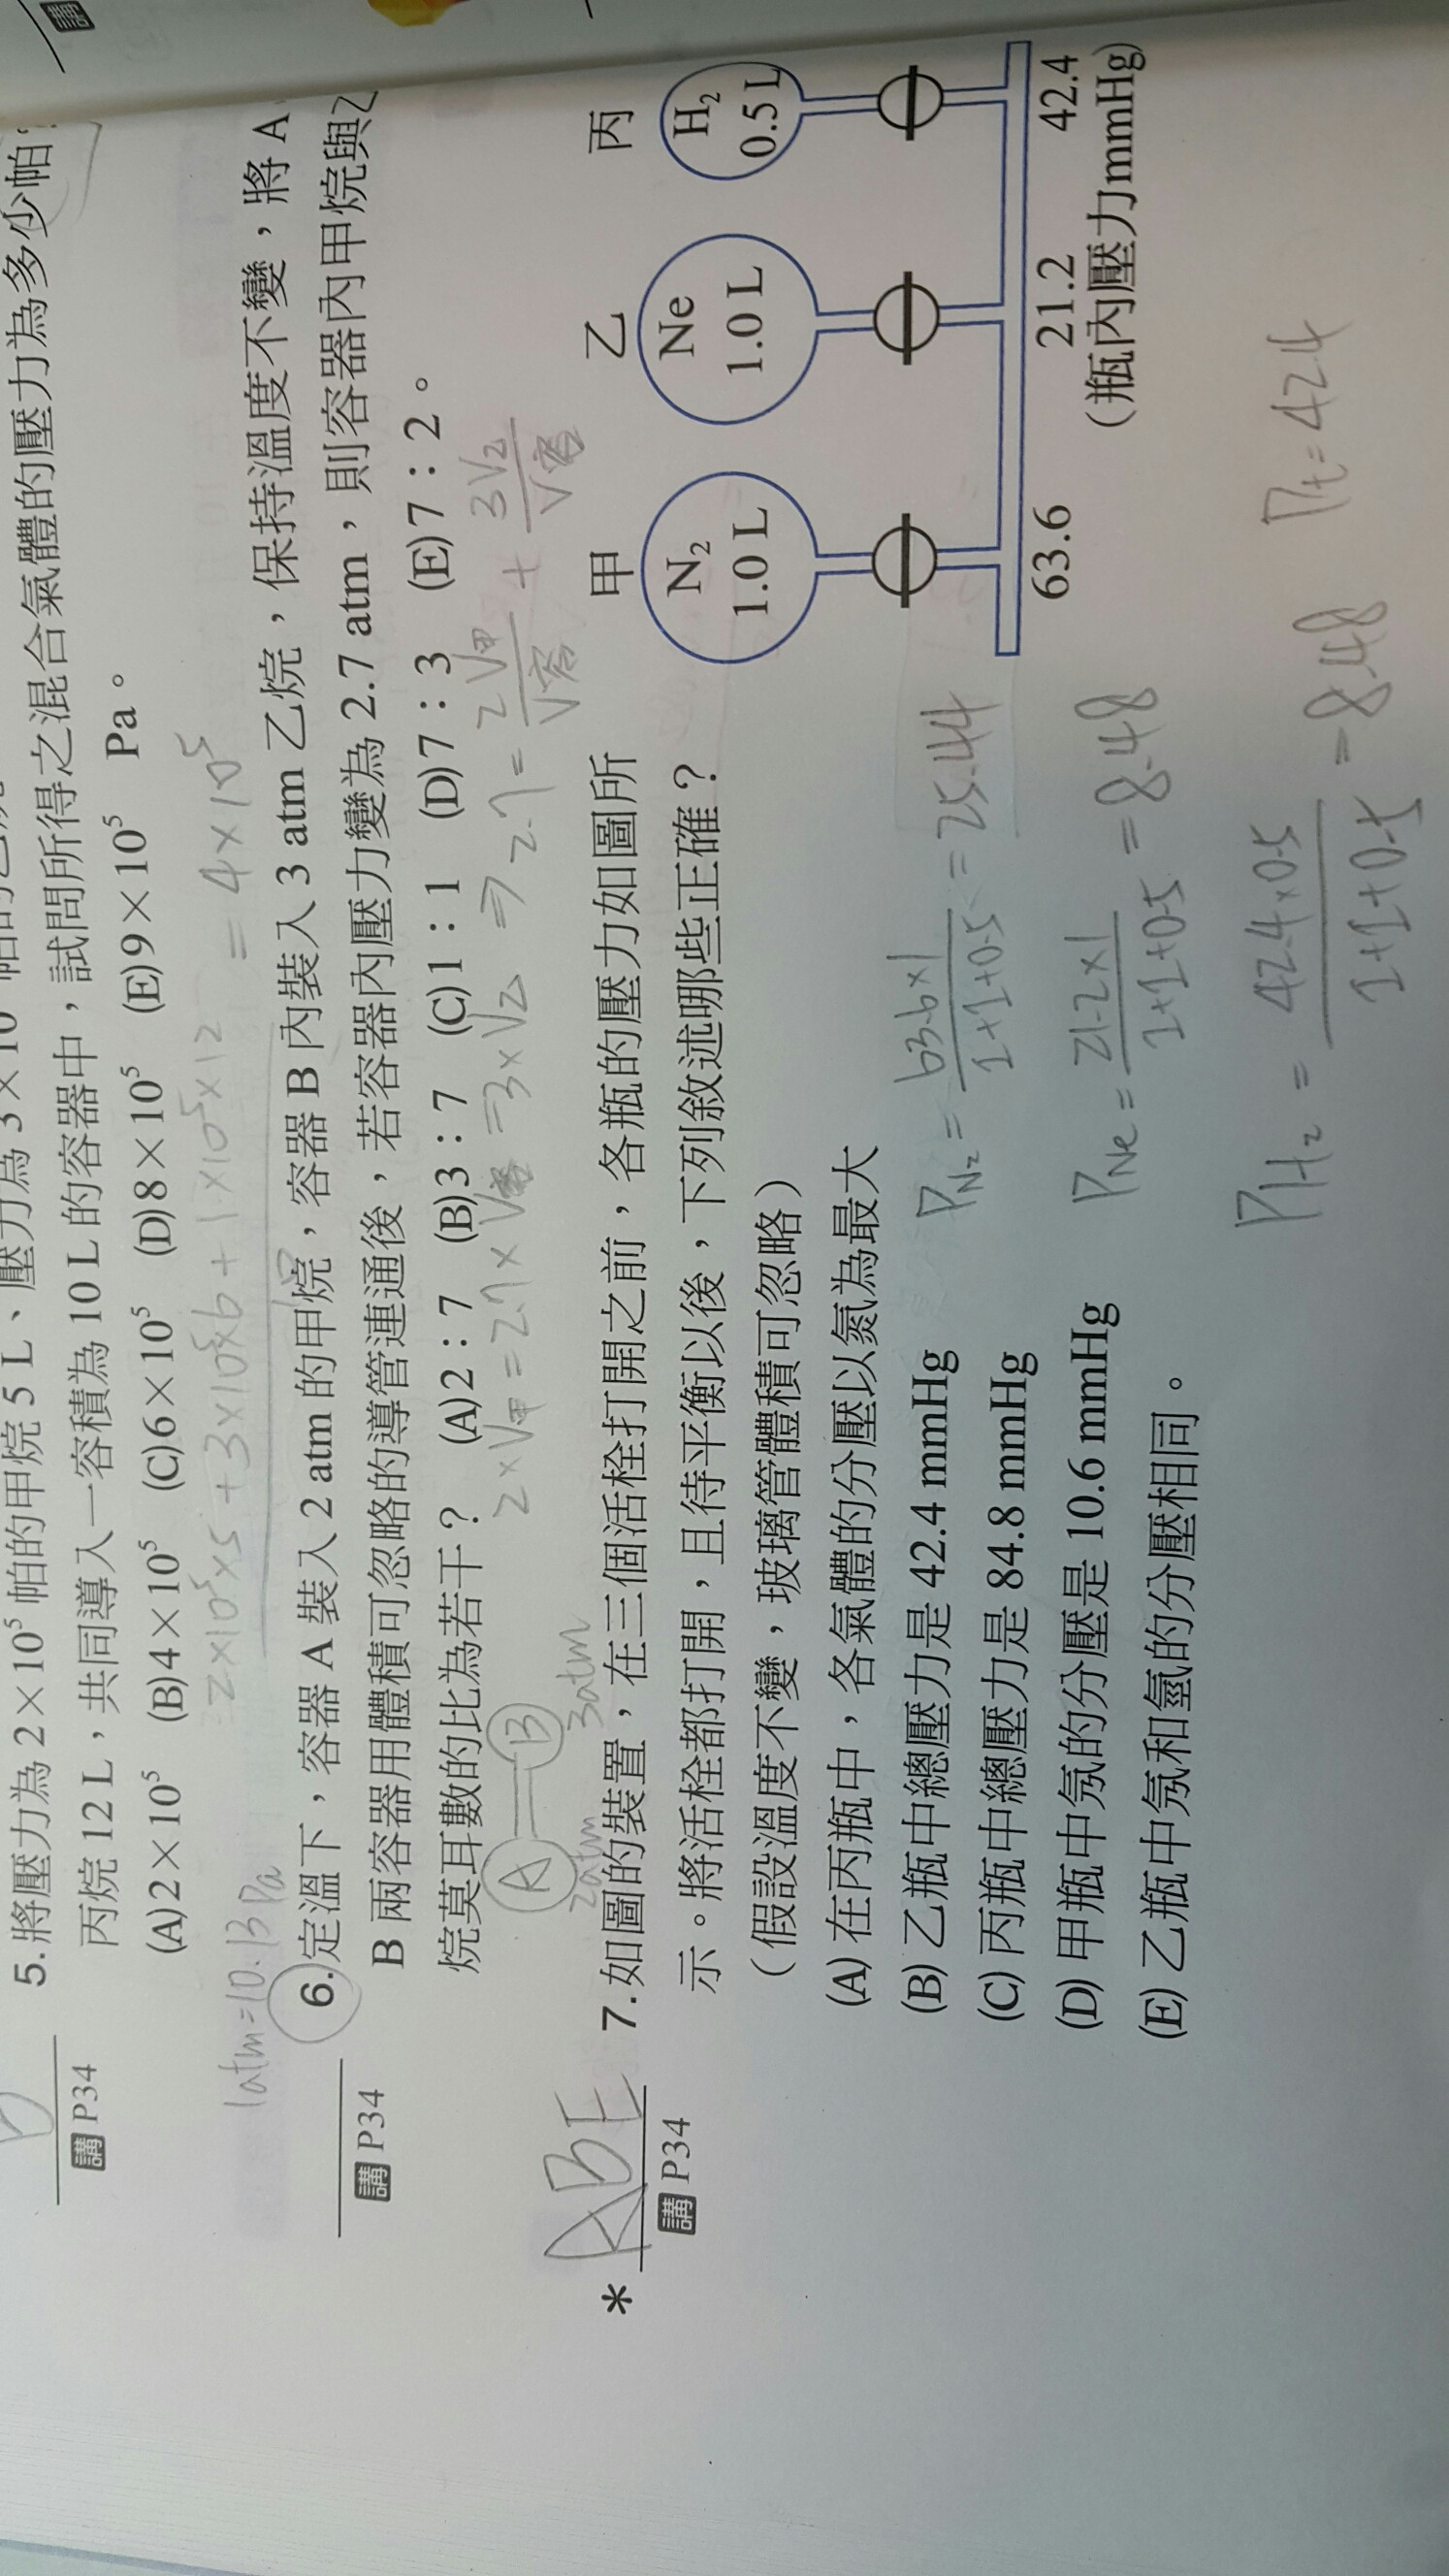 5.將壓力為 2×10⁵ 帕的甲烷 5 L、壓力為 3×10
丙烷 12 L,共同導入一容積為 10 L 的容器中,試問所得之混合氣體的壓力為多少帕?
(A)2×10⁵ (B)4×10⁵ (C)6×10⁵ (D)8×10⁵ (E)9×10⁵ Pa。
講 P34
2×10⁵×5+3×10⁵×6+1×10⁵×12 = 4×10⁵
1atm=10.13Pa
6.定溫下,容器 A 裝入 2 atm 的甲烷,容器 B 內裝入 3 atm 乙烷,保持溫度不變,將 A
B 兩容器用體積可忽略的導管連通後,若容器內壓力變為 2.7 atm,則容器內甲烷與乙
烷莫耳數的比為若干? (A)2:7 (B)3:7 (C)1:1 (D)7:3 (E)7:2。
講 P34
A B
2atm 3atm
* ABE
講 P34
7.如圖的裝置,在三個活栓打開之前,各瓶的壓力如圖所
示。將活栓都打開,且待平衡以後,下列敘述哪些正確?
(假設溫度不變,玻璃管體積可忽略)
(A) 在丙瓶中,各氣體的分壓以氮為最大
(B) 乙瓶中總壓力是 42.4 mmHg
(C) 丙瓶中總壓力是 84.8 mmHg
(D) 甲瓶中氖的分壓是 10.6 mmHg
(E) 乙瓶中氖和氫的分壓相同。
甲 乙 丙
N₂ Ne H₂
1.0 L 1.0 L 0.5 L
63.6 21.2 42.4
(瓶內壓力mmHg)
PN₂ = 63.6×1 / 1+1+0.5 = 25.44
PNe = 21.2×1 / 1+1+0.5 = 8.48
PH₂ = 42.4×0.5 / 1+1+0.5 = 8.48
Pt = 42.4